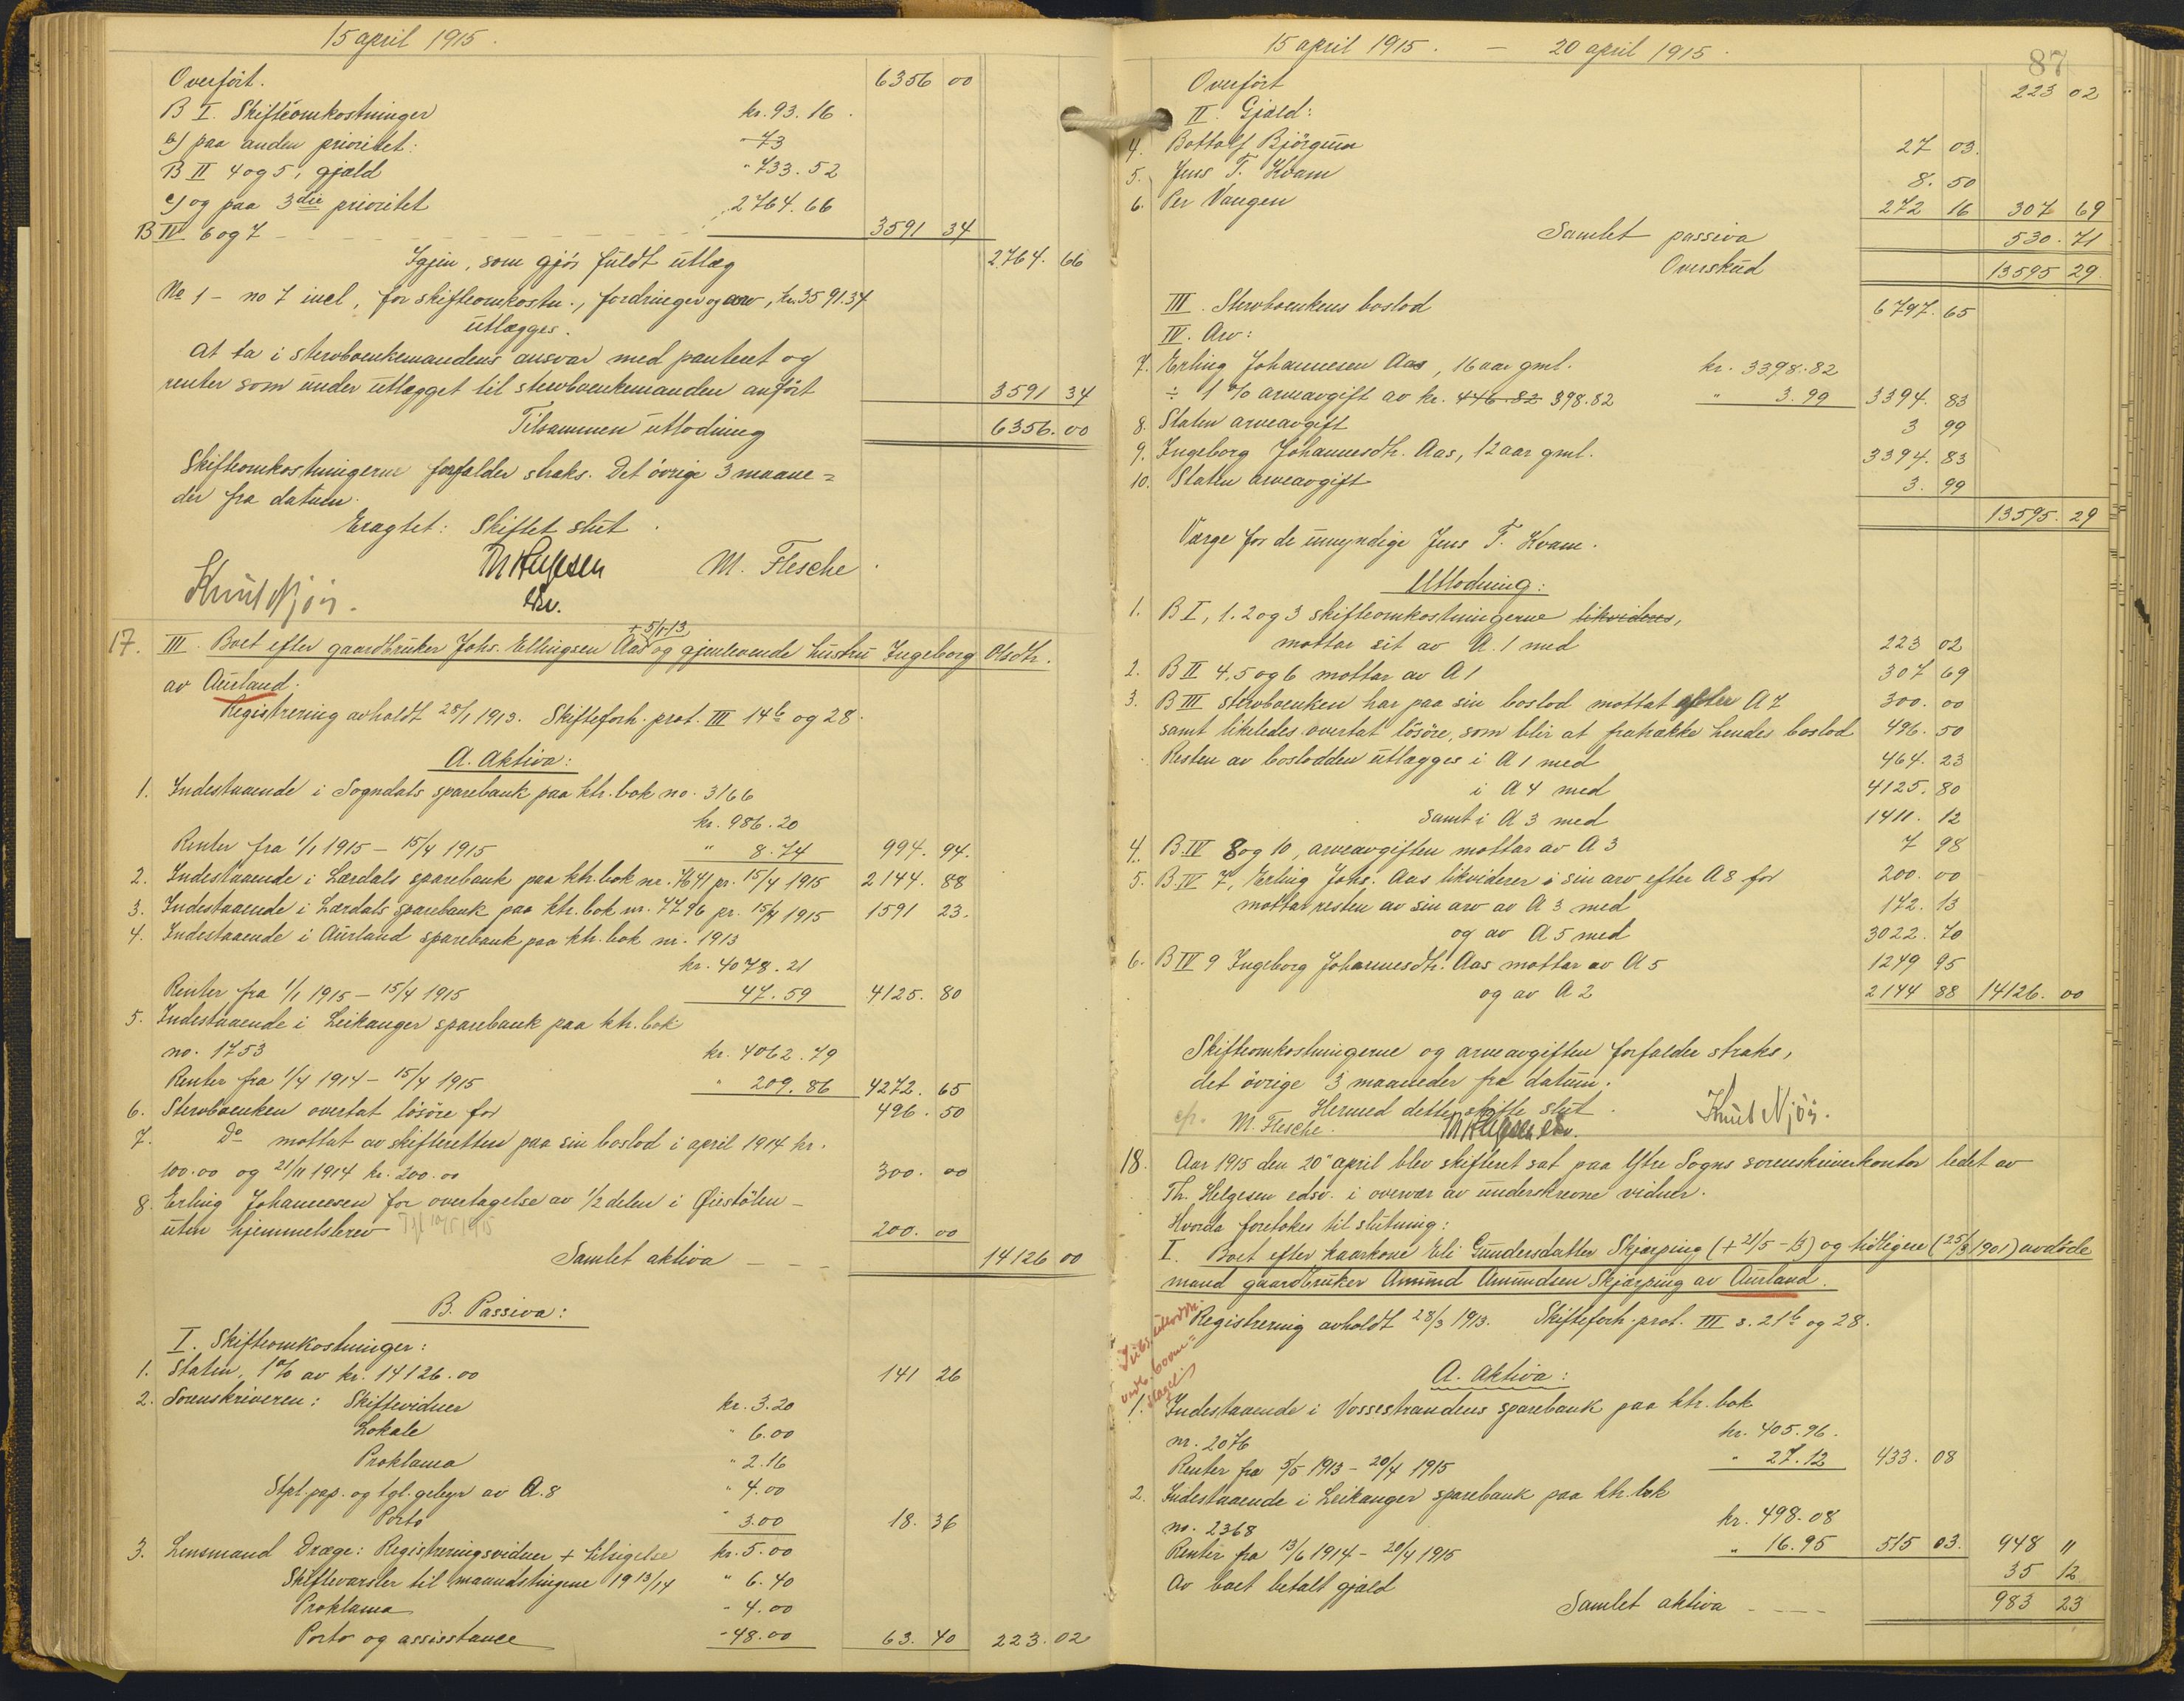 15 april 1915.
Overført. 6356 00
B I. Skifteomkostninger kr. 93.16.
b) paa anden prioritet: 73
B II 4 og 5, gjæld " 733.52
c) og paa 3die prioritet 2764.66
B IV 6 og 7 - - - 3591 34
Igjen, som gjør fuldt utlæg 2764. 66
No 1 - no 7 incl., for skifteomkostn., fordringer og arv, kr. 3591.34
utlægges.
At ta i stervboenkemandens ansvar med panteret og
renter som under utlægget til stervboenkemanden anført 3591 34
Tilsammen utlodning 6356. 00
Skifteomkostningerne forfalder straks. Det øvrige 3 maane=
der fra datum.
Eragtet: Skiftet slut.
Th Helgesen M. Flesche.
Knut Njøs. edsv.
+ 5/1-13
17. III. Boet efter gaardbruker Johs. Ellingsen Aas og gjenlevende hustru Ingeborg Olsdtr.
av Aurland.
Registrering avholdt 28/1 1913. Skifteforh. prot. III 14b og 28.
A. Aktiva:
1. Indestaaende i Sogndals sparebank paa ktr. bok no. 3166
kr. 986.20
Renter fra 1/1 1915 - 15/4 1915 " 8.74 994. 94.
2. Indestaaende i Lærdals sparebank paa ktr. bok nr. 7641 pr. 15/4 1915 2144. 88
3. Indestaaende i Lærdals sparebank paa ktr. bok nr. 7796 pr. 15/4 1915 1591 23.
4. Indestaaende i Aurland sparebank paa ktr. bok nr. 1913
kr. 4078.21
Renter fra 1/1 1915 - 15/4 1915 47.59 4125. 80
5. Indestaaende i Leikanger sparebank paa ktr. bok
no. 1753 kr. 4062.79
Renter fra 1/4 1914 - 15/4 1915 " 209.86 4272. 65
6. Stervboenken overtat løsøre for 496. 50
7. Do mottat av skifteretten paa sin boslod i april 1914 kr.
100.00 og 21/11 1914 kr. 200.00 300. 00
8. Erling Johannesen for overtagelse av 1/2 delen i Øiestølen -
uten hjemmelsbrev 200. 00
Samlet aktiva - - - 14126 00
B. Passiva:
I. Skifteomkostninger:
1. Staten, 1% av kr. 14126.00 141 26
2. Sorenskriveren: Skiftevidner kr. 3.20
Lokale " 6.00
Proklama " 2.16
Stpl. pap. og tgl. gebyr av A.8 " 4.00
Porto " 3.00 18. 36
3. Lensmand Dræge: Registreringsvidner + tilsigelse kr. 5.00
Skiftevarsler til maanedstingene 1913/14 " 6.40
Proklama " 4.00
Porto og assisstance " 48.00 63. 40 223.02
15 april 1915. - 20 april 1915.
87
Overført 223 02
II. Gjæld:
4. Bottolf Bjørgum 27 03.
5. Jens T. Kvam 8. 50
6. Per Vangen 272 16 307 69
Samlet passiva 530. 71
Overskud 13595 29.
III. Stervboenkens boslod 6797. 65
IV. Arv:
7. Erling Johannesen Aas, 16 aar gml. kr. 3398.82
÷ 1% arveavgift av kr. 446.82 398.82 " 3.99 3394. 83
8. Staten arveavgift 3 99
9. Ingeborg Johannesdtr. Aas, 12 aar gml. 3394. 83
10. Staten arveavgift 3. 99
13595. 29
Værge for de umyndige Jens T. Kvam.
Utlodning:
1. B I, 1. 2 og 3 skifteomkostningerne likvideres,
mottar sit av A. 1 med 223 02
2. B II 4. 5 og 6 mottar av A 1 307 69
3. B III stervboenken har paa sin boslod mottat efter A 7 300. 00
samt likeledes overtat løsøre, som blir at fratrække hendes boslod 496. 50
Resten av boslodden utlægges i A 1 med 464. 23
i A 4 med 4125. 80
samt i A 3 med 1411. 12
4. B.IV 8 og 10, arveavgiften mottar av A 3 7 98
5. B.IV 7, Erling Johs. Aas likviderer i sin arv efter A 8 for 200. 00
mottar resten av sin arv av A 3 med 172. 13
og av A 5 med 3022. 70
6. B IV 9 Ingeborg Johannesdtr. Aas mottar av A 5 1249 95
og av A 2 2144 88 14126. 00
Skifteomkostningerne og arveavgiften forfalder straks,
det øvrige 3 maaneder fra datum.
Hermed dette skifte slut.
M. Flesche. Th Helgesen edsv. Knut Njøs.
18. Aar 1915 den 20" april blev skifteret sat paa Ytre Sogns sorenskriverkontor ledet av
Th. Helgesen edsv. i overvær av underskrevne vidner.
Hvorda foretokes til slutning:
I. Boet efter kaarkone Eli Gundersdatter Skjærping (+ 21/5 - 13) og tidligere (25/3 1901) avdøde
mand gaardbruker Amund Amundsen Skjærping av Aurland.
Registrering avholdt 28/3 1913. Skifteforh. prot. III s. 21b og 28.
A. Aktiva:
1. Indestaaende i Vossestrandens sparebank paa ktr. bok
nr. 2076 kr. 405.96.
Renter fra 5/5 1913 - 20/4 1915 " 27.12 433. 08
2. Indestaaende i Leikanger sparebank paa ktr. bok
no. 2368 kr. 498.08
Renter fra 13/6 1914 - 20/4 1915 " 16.95 515 03. 948 11
Av boet betalt gjæld 35 12
Samlet aktiva - - - 983 23